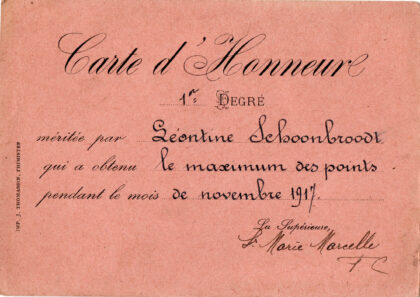 Carte d'Honneur
1er Degré
méritée par Léontine Schoonbroodt
qui a obtenu le maximum des points
pendant le mois de novembre 1917.
La Supérieure,
Sr Marie Marcelle
F C
IMP. J. THOMASSIN, THIMISTER